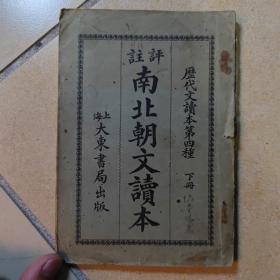 評註
歷代文讀本第四種 下冊
南北朝文讀本
上海大東書局出版